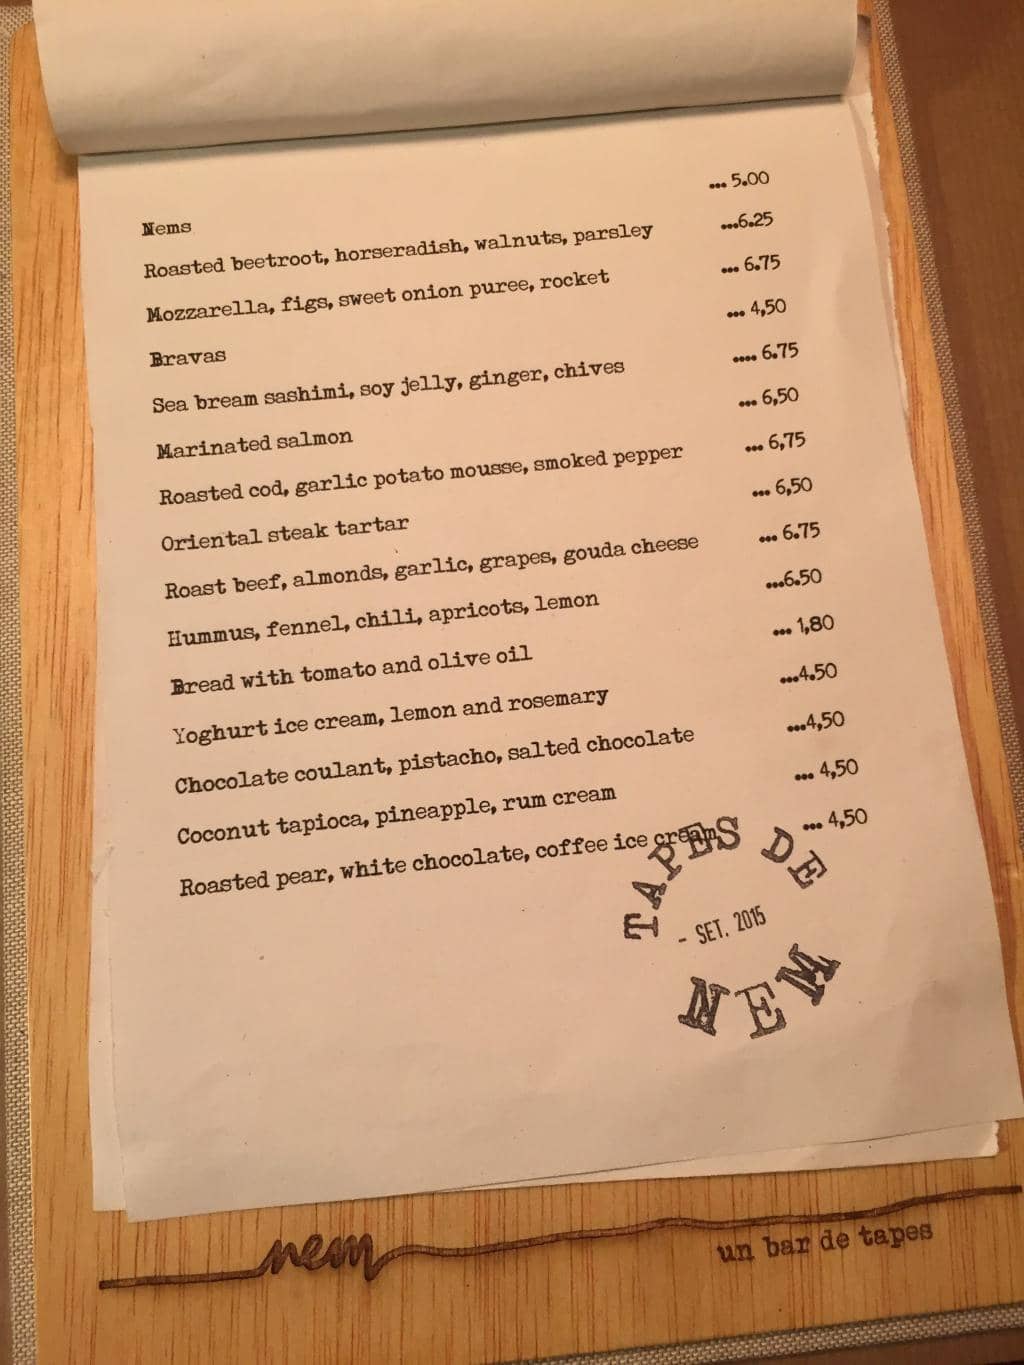 Nems ... 5.00
Roasted beetroot, horseradish, walnuts, parsley ...6.25
Mozzarella, figs, sweet onion puree, rocket ... 6.75
Bravas ... 4,50
Sea bream sashimi, soy jelly, ginger, chives .... 6.75
Marinated salmon ... 6,50
Roasted cod, garlic potato mousse, smoked pepper ... 6,75
Oriental steak tartar ... 6,50
Roast beef, almonds, garlic, grapes, gouda cheese ... 6.75
Hummus, fennel, chili, apricots, lemon ...6.50
Bread with tomato and olive oil ... 1,80
Yoghurt ice cream, lemon and rosemary ...4.50
Chocolate coulant, pistacho, salted chocolate ...4,50
Coconut tapioca, pineapple, rum cream ... 4,50
Roasted pear, white chocolate, coffee ice cream ... 4,50
TAPES DE
- SET. 2015
NEM
nem
un bar de tapes